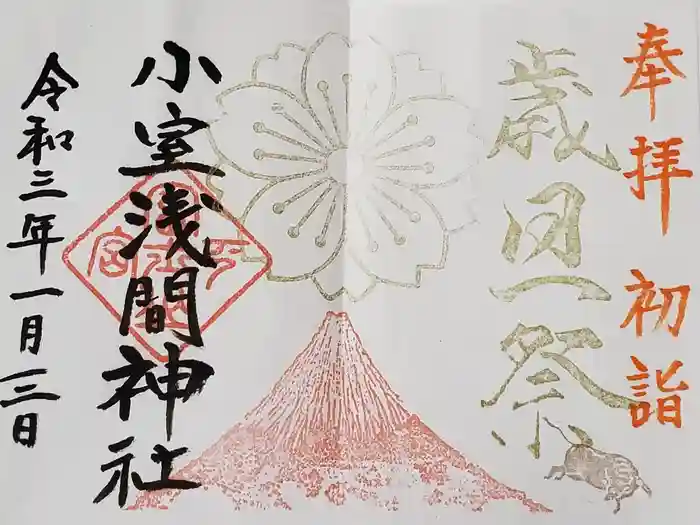 奉拝 初詣
歳旦祭
小室浅間神社
令和三年一月三日